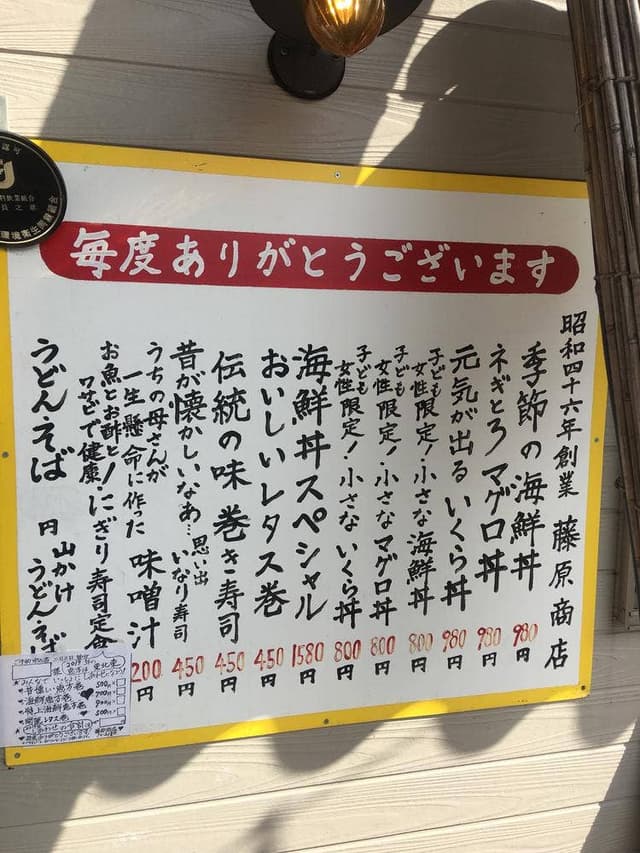 毎度ありがとうございます
昭和四十六年創業 藤原商店
季節の海鮮丼 980円
ネギとろマグロ丼 980円
元気が出るいくら丼 980円
子ども女性限定!小さな海鮮丼 800円
子ども女性限定!小さなマグロ丼 800円
子ども女性限定!小さないくら丼 800円
海鮮丼スペシャル 1580円
おいしいレタス巻 450円
伝統の味巻き寿司 450円
昔が懐かしいなあ…思い出いなり寿司 450円
うちの母さんが
一生懸命に作った味噌汁 200円
お魚とお酢と!
ワサビで健康
にぎり寿司定食
うどん.そば 円
山かけ
うどん.そば
海鮮恵方巻
特上海鮮恵方巻